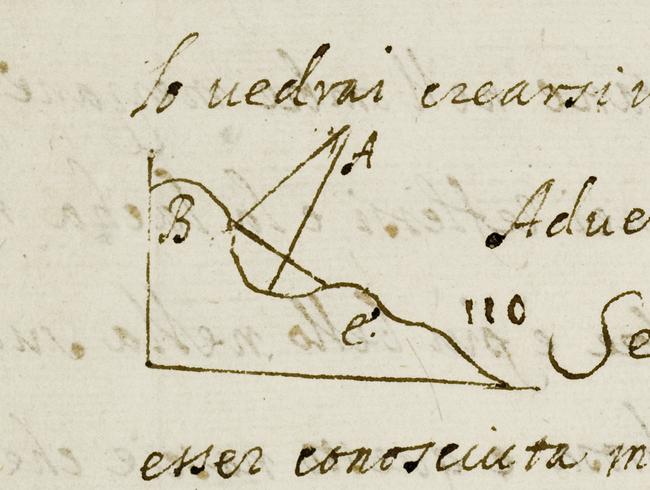 lo uedrai crearsi
A
B
Adue
e
110
Se
esser conosciuta m